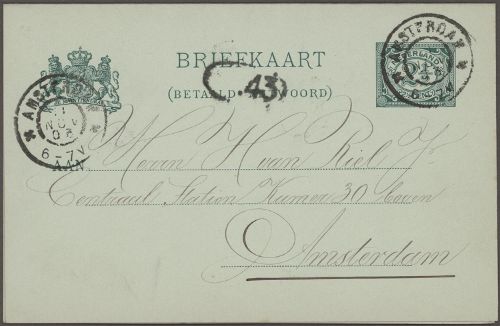 BRIEFKAART
(BETAALD ANTWOORD)
43
AMSTERDAM
6-7V
AMSTERDAM
6-7V
AAN
Heeren Van Riel Jr
Centraal Station Kamer 30 boven
Amsterdam